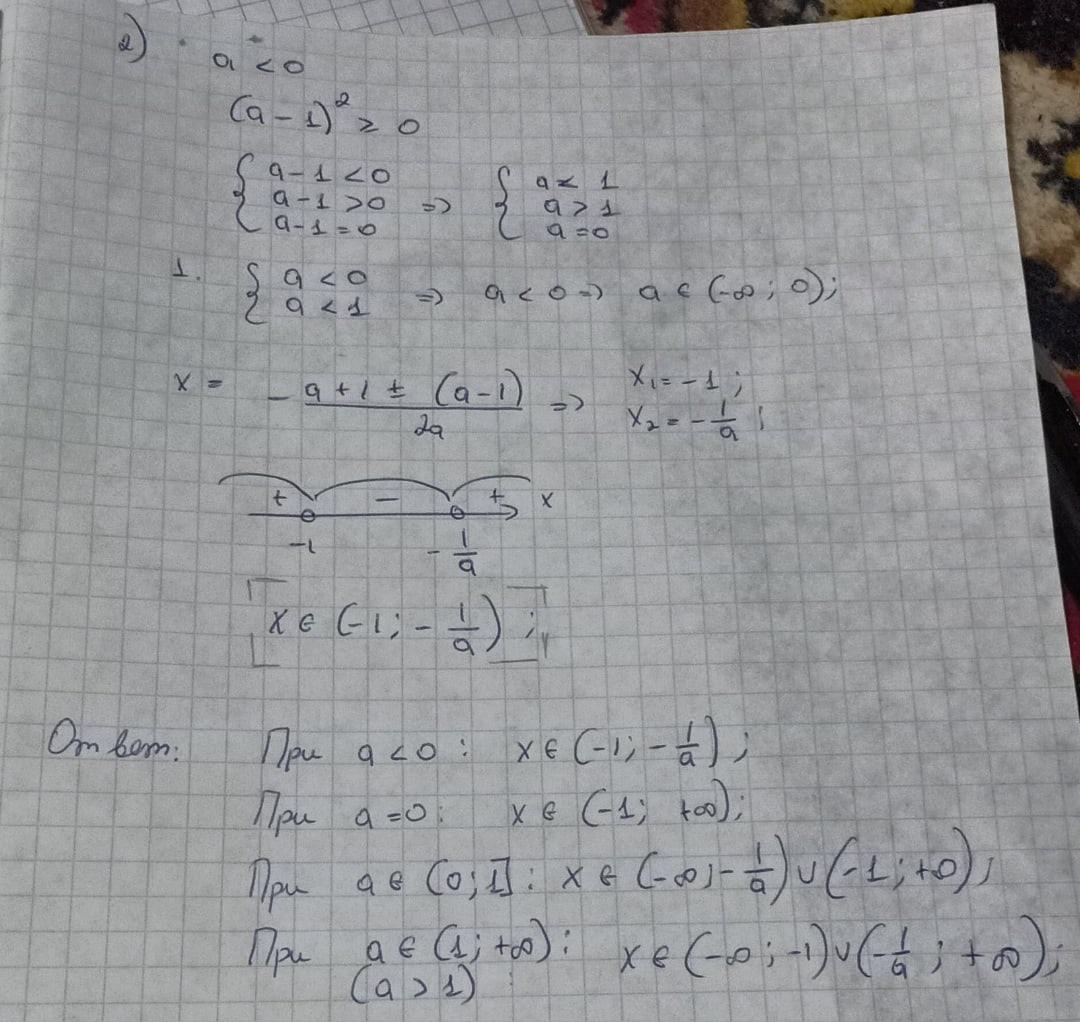 2) a < 0
(a - 1)² ≥ 0
{ a - 1 < 0
a - 1 > 0 => { a < 1
a - 1 = 0 a > 1
a = 0
1. { a < 0
a < 1 => a < 0 => a ∈ (-∞; 0);
x = - a + 1 ± (a - 1) / 2a => x₁ = -1;
x₂ = - 1/a ;
+ - + x
-1 - 1/a
x ∈ (-1; - 1/a) ;
Ответ: При a < 0 : x ∈ (-1; - 1/a) ;
При a = 0: x ∈ (-1; +∞);
При a ∈ (0; 1] : x ∈ (-∞; - 1/a) ∪ (-1; +∞);
При a ∈ (1; +∞) : x ∈ (-∞; -1) ∪ (- 1/a ; +∞);
(a > 1)